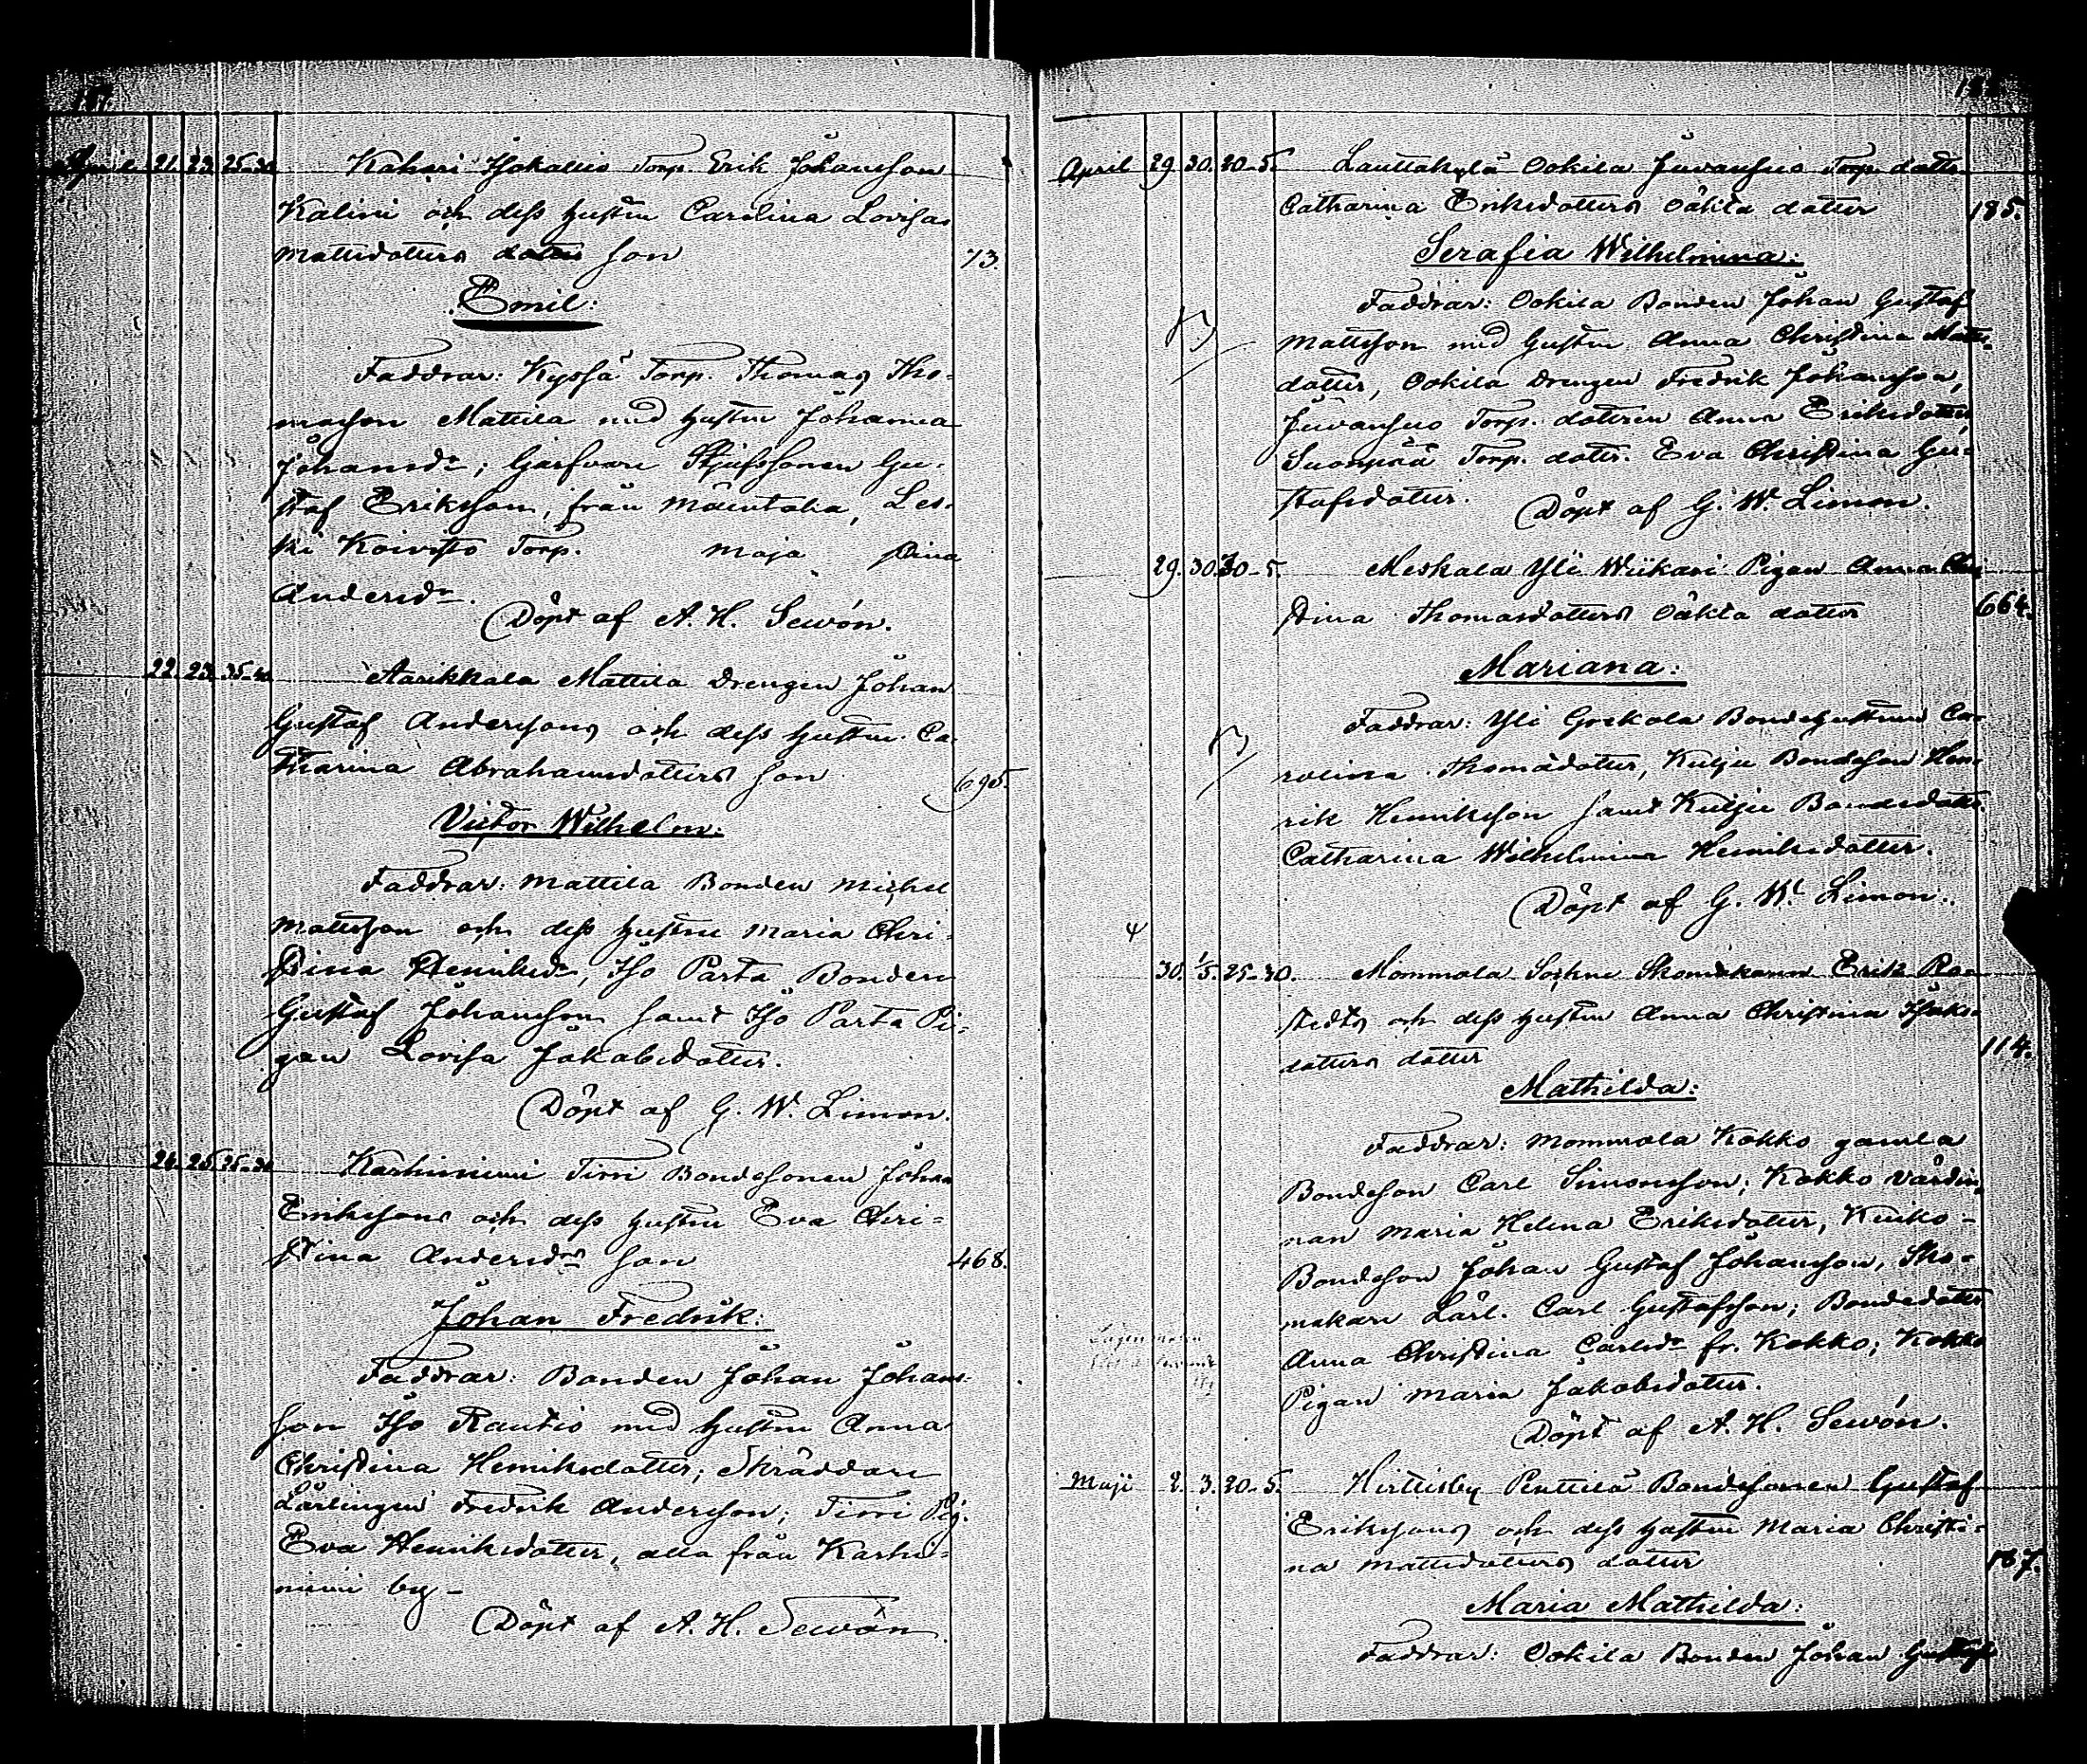 April 21. 23. 25-30 Kahari Isokallio Torp. Erik Johansson
Kalini och dess hustru Carolina Lovisa
Mattsdotters son 73.
Emil:
Faddrar: Thomas Tho-
masson Mattila med hustru Johanna
Johansdr; Garfvare Gu-
staf Eriksson, från Mäentaka, Les-
ki Koivisto Torp. Maja Stina
Andersdr.
Döpt af A. H. Sewón.
22. 23. 35-40 Aarikkala Mattila Drengen Johan
Gustaf Anderssons och dess hustru Ca-
tharina Abrahamsdotters son 695.
Victor Wilhelm:
Faddrar: Mattila Bonden Michel
Mattsson och dess hustru Maria Chri-
stina Henriksdr, Iso Parta Bonden
Gustaf Johansson samt Iso Parta Pi-
gan Lovisa Jakobsdotter.
Döpt af G. W. Limon.
24. 25. 25-30 Karhiniemi Tirri Bondesonen Johan
Erikssons och dess hustru Eva Chri-
stina Andersdrs son 468.
Johan Fredrik:
Faddrar: Bonden Johan Johans-
son Iso Rautio med hustru Anna
Christina Henriksdotter; Skräddare
Lärlingen Fredrik Andersson; Tirri Pig.
Eva Henriksdotter, alla från Karhi-
niemi by -
Döpt af A. H. Sewón
April 29. 30. 20-5. Lauttakylä Ookila Juvansuo Torp. dottr.
Catharina Eriksdotters oäkta dotter 185.
Serafia Wilhelmina:
Faddrar: Ookila Bonden Johan Gustaf
Mattsson med hustru Anna Christina Matts-
dotter, Ookila Drengen Fredrik Johansson,
Juvansuo Torp. dottren Anna Eriksdotter,
Suonpää Torp. dotter. Eva Christina Gu-
stafsdotter. Döpt af G. W. Limon.
29. 30. 30-5. Meskala Yli Wiikari Pigan Anna Chri
stina Thomasdotters oäkta dotter 664.
Mariana:
Faddrar: Yli Grekola Bondehustrun Ca-
rolina Thomadotter, Kulju Bondeson Hen-
rik Henriksson samt Kulju Bondedotter
Catharina Wilhelmina Henriksdotter.
Döpt af G. W. Limon.
30. 1/5. 25-30. Mommola Skomakaren Erik Ro-
stedts och dess hustru Anna Christina Isaks-
dotters dotter 114.
Mathilda:
Faddrar: Mommola Kokko gamla
Bondeson Carl Simonsson; Kokko värdin-
nan Maria Helena Eriksdotter,
Bondeson Johan Gustaf Johansson, Sko-
makare Lärl. Carl Gustafsson; Bondedotter
Anna Christina Carlsdr fr. Kokko; Kokko
Pigan Maria Jakobsdotter.
Döpt af A. H. Sewón.
Maji 2. 3. 20-5. Hirttisby Penttilä Bondesonen Gustaf
Erikssons och dess hustru Maria Christi-
na Mattsdotters dotter 167.
Maria Mathilda:
Faddrar: Ookila Bonden Johan Gustafs